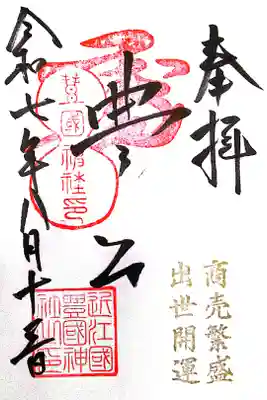 奉拝
商売繁盛
出世開運
豊公
豊國神社印
近江國
豊國神
社山印
令和七年八月十一日